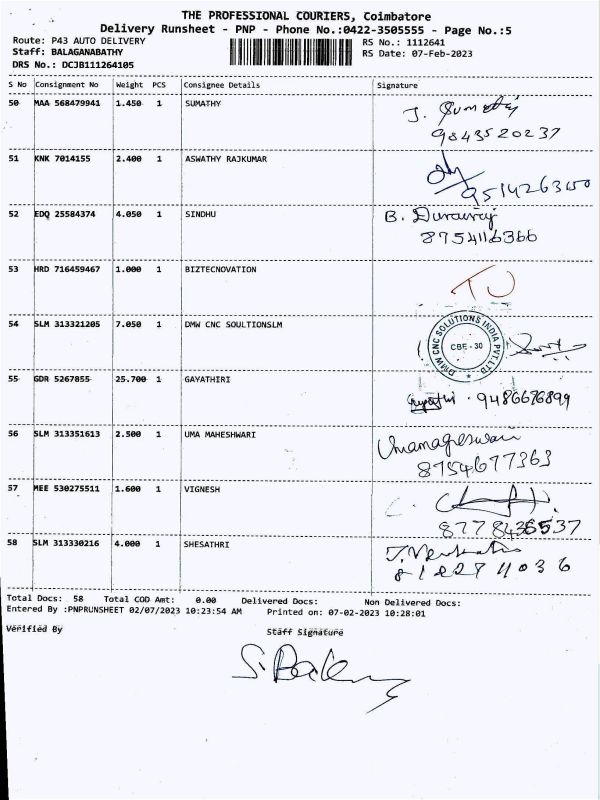 THE PROFESSIONAL COURIERS, Coimbatore
Delivery Runsheet - PNP - Phone No.:0422-3505555 - Page No.:5
Route: P43 AUTO DELIVERY RS No.: 1112641
Staff: BALAGANABATHY RS Date: 07-Feb-2023
DRS No.: DCJB111264105
S No Consignment No Weight PCS Consignee Details Signature
50 MAA 568479941 1.450 1 SUMATHY J. Sumathy
9843520237
51 KNK 7014155 2.400 1 ASWATHY RAJKUMAR
52 EDQ 25584374 4.050 1 SINDHU B. Durairaj
8754116366
53 HRD 716459467 1.000 1 BIZTECNOVATION
54 SLM 313321205 7.050 1 DMW CNC SOULTIONSLM
DMW CNC SOLUTIONS INDIA PVT. LTD
CBE - 30
55 GDR 5267855 25.700 1 GAYATHIRI Gayathri . 9486676899
56 SLM 313351613 2.500 1 UMA MAHESHWARI Umamageswari
8754677363
57 MEE 530275511 1.600 1 VIGNESH
8778436537
58 SLM 313330216 4.000 1 SHESATHRI
Total Docs: 58 Total COD Amt: 0.00 Delivered Docs: Non Delivered Docs:
Entered By :PNPRUNSHEET 02/07/2023 10:23:54 AM Printed on: 07-02-2023 10:28:01
Verified By Staff Signature